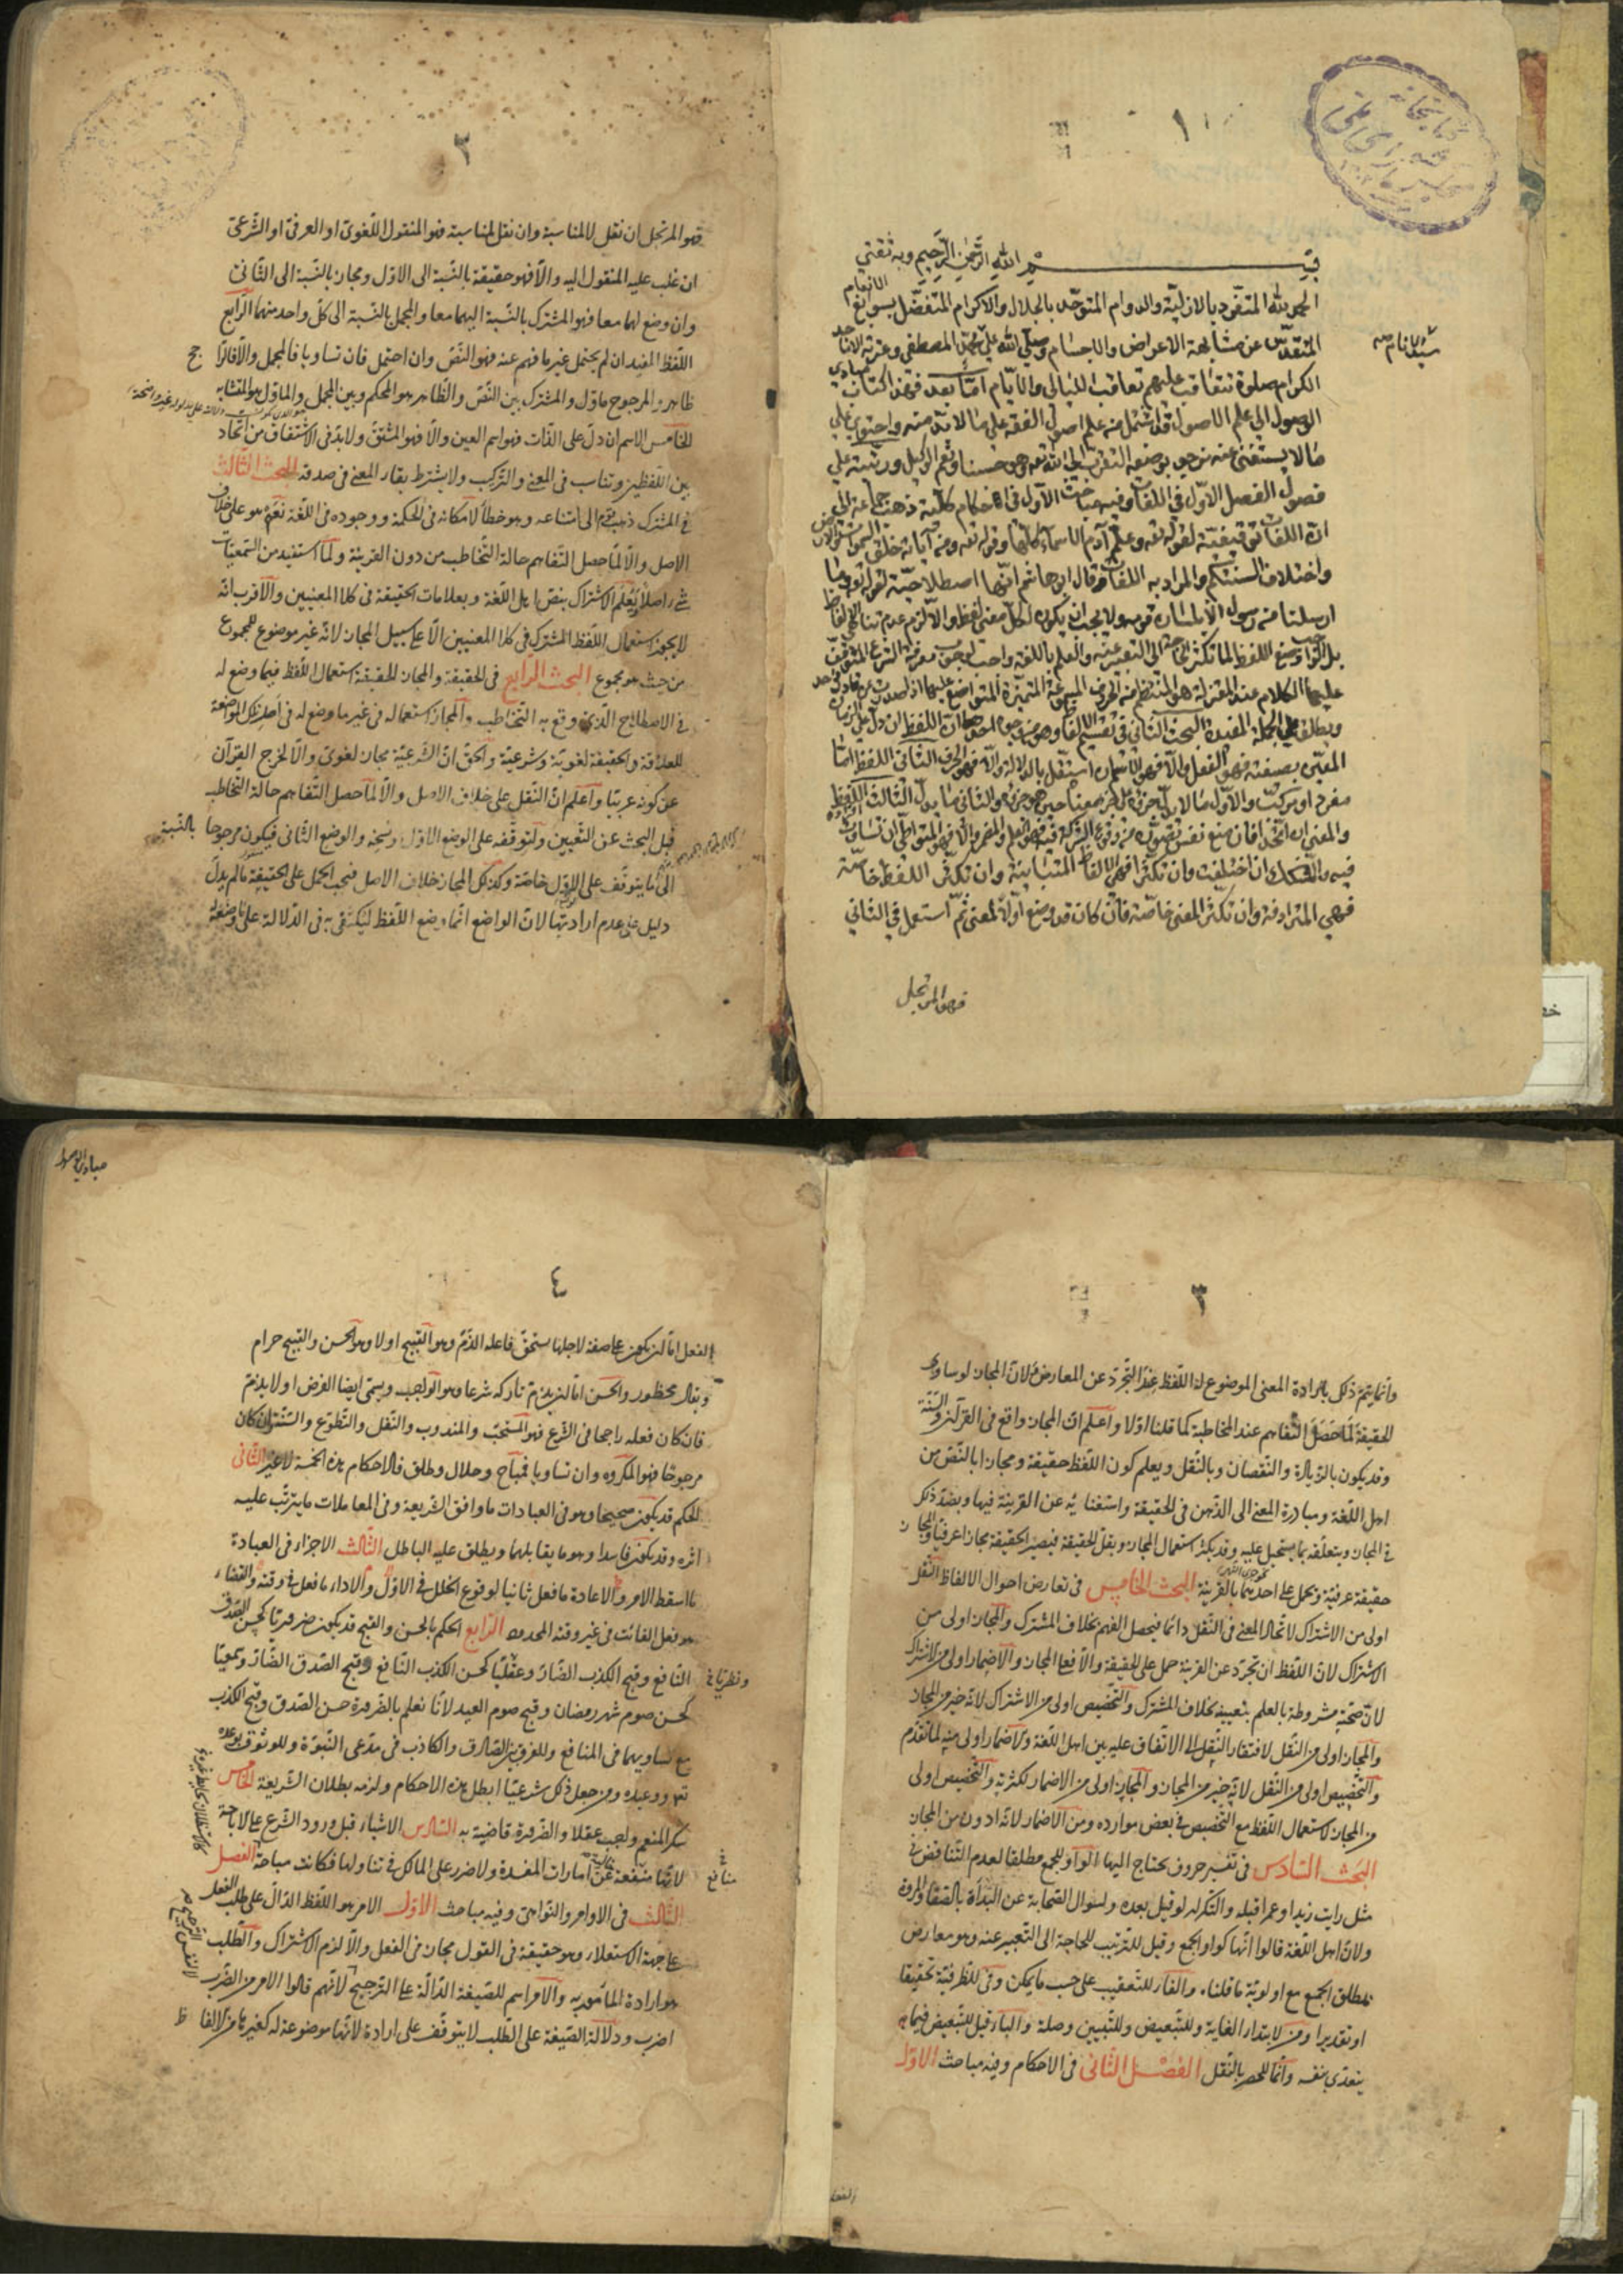 ١
بسم الله الرحمن الرحيم وبه ثقتي
الحمد لله المتفرد بالازلية والدوام المتوحد بالجلال والاكرام المتفضل بسوابغ الانعام
المتقدس عن مشابهة الاعراض والاجسام وصلى الله على محمد المصطفى وعترته الاماجد
سيد الانام
الكرام صلوة تتعاقب عليهم تعاقب الليالي والايام اما بعد فهذا كتاب مبادي
الوصول الى علم الاصول قد اشتمل من علم اصول الفقه على ما لا بد منه واحتوى على
ما لا يستغنى عنه نرجو بوضعه التقرب الى الله تعه وهو حسبنا ونعم الوكيل ورتبته على
فصول الفصل الاول في اللغات وفيه مباحث الاول في احكام كلية ذهب جماعة الى
ان اللغات توقيفية لقوله تعه وعلم آدم الاسماء كلها وقوله تعه ومن آياته خلق السموات والارض
واختلاف السنتكم والمراد به اللغات وقال ابو هاشم انها اصطلاحية لقوله تعه وما
ارسلنا من رسول الا بلسان قومه ولا يجب ان يكون لكل معنى لفظ والا لزم عدم تناهي الالفاظ
بل الواجب وضع اللفظ لما تكثر الحاجة الى التعبير عنه والعلم باللغة واجب لوجوب معرفة الشرع المتوقف
عليها الكلام عند المعتزلة هو المنتظم من الحروف المسموعة المتميزة المتواضع عليها اذا صدرت عن قادر واحد
ويطلق على الجملة المفيدة البحث الثاني في تقسيم الالفاظ وهو من وجوه احدها ان اللفظ ان دل على الزمان
المعين بصيغته فهو الفعل والا فهو الاسم ان استقل بالدلالة والا فهو الحرف الثاني اللفظ اما
مفرد او مركب والاول ما لا يدل جزؤه على جزء معناه حين هو جزؤه والثاني ما يدل الثالث اللفظ
والمعنى ان اتحدا فان منع نفس تصوره من وقوع الشركة فيه فهو العلم والمضمر والا فهو المتواطي ان تساوت افراده
فيه والمشكك ان اختلفت وان تكثرا فهي الالفاظ المتباينة وان تكثر اللفظ خاصة
فهي المترادفة وان تكثر المعنى خاصة فان كان قد وضع اولا لمعنى ثم استعمل في الثاني
فهو المرتجل
٢
فهو المرتجل ان نقل لا لمناسبة وان نقل لمناسبة فهو المنقول اللغوى او العرفى او الشرعى
ان غلب عليه المنقول اليه والا فهو حقيقة بالنسبة الى الاول ومجاز بالنسبة الى الثانى
وان وضع لهما معا فهو المشترك بالنسبة اليهما معا والمجمل بالنسبة الى كل واحد منهما الرابع
اللفظ المفيد ان لم يحتمل غير ما فهم عنه فهو النص وان احتمل فان تساويا فالمجمل والا فالراجح
ظاهر والمرجوح ماول والمشترك بين النص والظاهر هو المحكم وبين المجمل والماول هو المتشابه
الخامس الاسم ان دل على الذات فهو اسم العين والا فهو المشتق ولا بد فى الاشتقاق من اتحاد
بين اللفظين وتناسب فى المعنى والتركيب ولا يشترط بقاء المعنى فى صدقه البحث الثالث
فى المشترك ذهب قوم الى امتناعه وهو خطأ لامكانه فى الحكمة ووجوده فى اللغة نعم هو على خلاف
الاصل والا لما حصل التفاهم حالة التخاطب من دون القرينة ولما استفيد من السمعيات
شئ اصلا ويعلم الاشتراك بنص اهل اللغة وبعلامات الحقيقة فى كلا المعنيين والاقرب انه
لا يجوز استعمال اللفظ المشترك فى كلا المعنيين الا على سبيل المجاز لانه غير موضوع للمجموع
من حيث هو مجموع البحث الرابع فى الحقيقة والمجاز الحقيقة استعمال اللفظ فيما وضع له
فى الاصطلاح الذى وقع به التخاطب والمجاز استعماله فى غير ما وضع له فى اصل تلك المواضعة
للعلاقة والحقيقة لغوية وشرعية والحق ان الشرعية مجاز لغوى والا لخرج القرآن
عن كونه عربيا واعلم ان النقل على خلاف الاصل والا لما حصل التفاهم حالة التخاطب
قبل البحث عن التعيين ولتوقفه على الوضع الاول ونسخه والوضع الثانى فيكون مرجوحا بالنسبة
الى ما يتوقف على الاول خاصة وكذلك المجاز خلاف الاصل فيجب الحمل على الحقيقة ما لم يدل
دليل على عدم ارادتها لان الواضع انما وضع اللفظ ليكتفى به فى الدلالة على ما وضعه
٣
وانما يتم ذلك بارادة المعنى الموضوع له اللفظ عند التجرد عن المعارض ولان المجاز لو ساوى
الحقيقة لما حصل التفاهم عند المخاطبة كما قلنا اولا واعلم ان المجاز واقع فى القرآن والسنة
وقد يكون بالزيادة والنقصان وبالنقل ويعلم كون اللفظ حقيقة ومجازا بالنص من
اهل اللغة ومبادرة المعنى الى الذهن فى الحقيقة واستغنائه عن القرينة فيها وبضد ذلك
فى المجاز وبتعلقه بما يستحيل عليه وقد يكثر استعمال المجاز ويقل الحقيقة فيصير الحقيقة مجازا عرفيا والمجاز
حقيقة عرفية ويحمل على احدهما بالقرينة البحث الخامس فى تعارض احوال الالفاظ النقل
اولى من الاشتراك لاتحاد المعنى فى النقل دائما فيحصل الفهم بخلاف المشترك والمجاز اولى من
الاشتراك لان اللفظ ان تجرد عن القرينة حمل على الحقيقة والا فعلى المجاز والاضمار اولى من الاشتراك
لان صحته مشروطة بالعلم بتعيينه بخلاف المشترك والتخصيص اولى من الاشتراك لانه خير من المجاز
والمجاز اولى من النقل لافتقار النقل الى الاتفاق عليه بين اهل اللغة والاضمار اولى منه لما تقدم
والتخصيص اولى من النقل لانه خير من المجاز والمجاز اولى من الاضمار لكثرته والتخصيص اولى
من المجاز لاستعمال اللفظ مع التخصيص فى بعض موارده ومن الاضمار لانه ادون من المجاز
البحث السادس فى تفسير حروف يحتاج اليها الواو للجمع مطلقا لعدم التناقض فى
مثل رايت زيدا وعمرا قبله والتكرار لو قيل بعده ولسوال الصحابة عن البدأة بالصفا والمروة
ولان اهل اللغة قالوا انها كواو الجمع وقيل للترتيب للحاجة الى التعبير عنه وهو معارض
بمطلق الجمع مع اولوية ما قلناه والفاء للتعقيب على حسب ما يمكن وفى للظرفية تحقيقا
او تقديرا ومن لابتداء الغاية وللتبعيض وللتبيين وصلة والباء قيل للتبعيض فيما
يتعدى بنفسه وانما للحصر بالنقل الفصل الثانى فى الاحكام وفيه مباحث الاول
الفعل
مبادى الوصول
٤
الفعل اما ان يكون على صفة لاجلها يستحق فاعله الذم وهو القبيح او لا وهو الحسن والقبيح حرام
ويقال محظور والحسن اما ان يذم تاركه شرعا وهو الواجب ويسمى ايضا الفرض او لا يذم
فان كان فعله راجحا فى الشرع فهو المستحب والمندوب والنفل والتطوع والسنة وان كان
مرجوحا فهو المكروه وان تساويا فمباح وحلال وطلق فالاحكام هذه الخمسة لا غير الثانى
الحكم قد يكون صحيحا وهو فى العبادات ما وافق الشريعة وفى المعاملات ما يترتب عليه
اثره وقد يكون فاسدا وهو ما يقابلهما ويطلق عليه الباطل الثالث الاجزاء فى العبادة
ما اسقط الامر والاعادة ما فعل ثانيا لوقوع الخلل فى الاول والاداء ما فعل فى وقته والقضاء
هو فعل الفائت فى غير وقته المحدود الرابع الحكم بالحسن والقبح قد يكون ضروريا كحسن الصدق
النافع وقبح الكذب الضار وعقليا كحسن الكذب النافع وقبح الصدق الضار وسمعيا
ونظريا
كحسن صوم شهر رمضان وقبح صوم العيد لانا نعلم بالضرورة حسن الصدق وقبح الكذب
مع تساويهما فى المنافع وللفرق بين الصادق والكاذب فى مدعى النبوة وللوثوق بوعده
تعه ووعيده ومن جعل ذلك شرعيا ابطل هذه الاحكام ولزمه بطلان الشريعة الخامس
شكر المنعم واجب عقلا والضرورة قاضية به السادس الاشياء قبل ورود الشرع على الاباحة
لانها منفعة خالية عن امارات المفسدة ولا ضرر على المالك فى تناولها فكانت مباحة الفصل
منافع
الثالث فى الاوامر والنواهى وفيه مباحث الاول الامر هو اللفظ الدال على طلب الفعل
على جهة الاستعلاء وهو حقيقة فى القول مجاز فى الفعل والا لزم الاشتراك والطلب
هو ارادة المأمور به والامر اسم للصيغة الدالة على الترجيح لانهم قالوا الامر من الضرب
اضرب ودلالة الصيغة على الطلب لا يتوقف على ارادة لانها موضوعة له كغيرها من الالفاظ